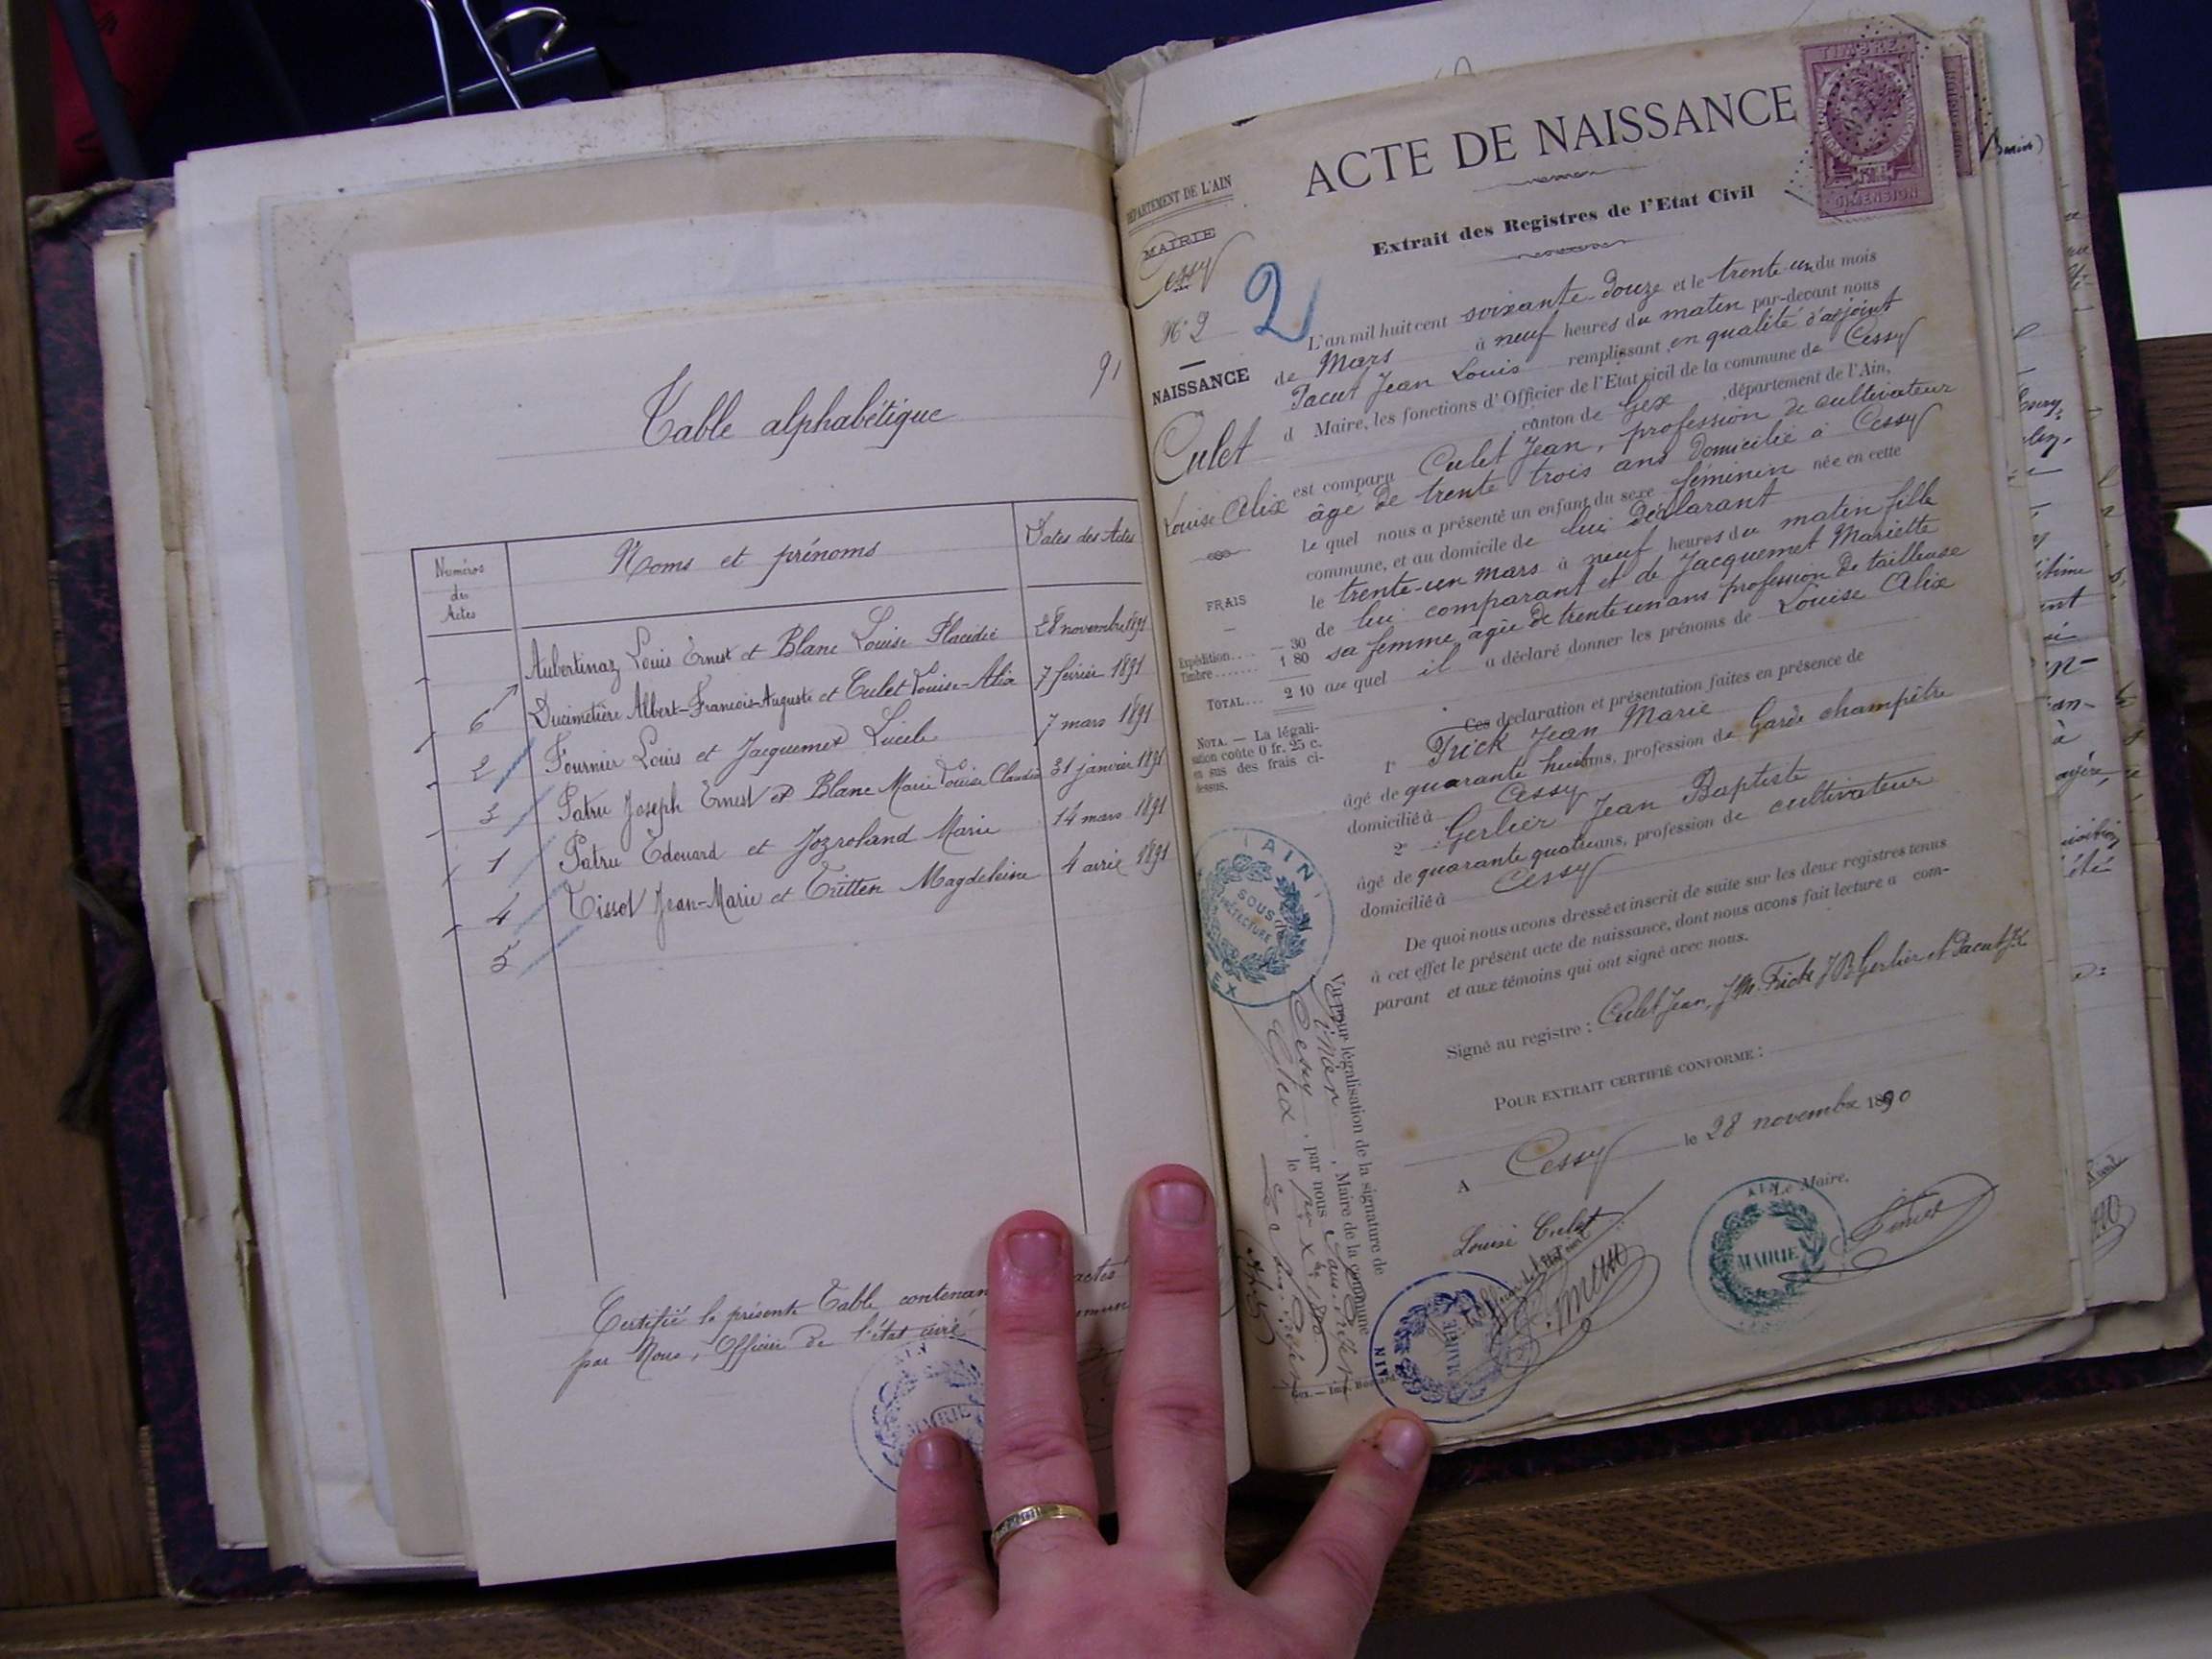 91
Table alphabétique
Numéros
des
Actes
Noms et prénoms
Dates des Actes
Aubertinaz Louis Ernest et Blanc Louise Placidie 28 novembre 1891
6 Ducimetière Albert-François-Auguste et Culet Louise-Alix 7 février 1891
2 Fournier Louis et Jacquemet Lucile 7 mars 1891
3 Patru Joseph Ernest et Blanc Marie Louise Claudia 31 janvier 1891
1 Patru Edouard et Jozroland Marie 14 mars 1891
4 Tissot Jean-Marie et Tritten Magdeleine 4 avril 1891
5
Certifié la présente Table contenan
actes
par Nous, Officier de l'état civil
mmun
MAIRIE
ACTE DE NAISSANCE
Extrait des Registres de l'Etat Civil
TIMBRE
DIMENSION
DÉPARTEMENT DE L'AIN
MAIRIE
Cessy
N° 2
2
NAISSANCE
Culet
Louise Alix
FRAIS
Expédition.... — 30
Timbre....... 1 80
TOTAL... 2 10
NOTA. — La légali-
sation coûte 0 fr. 25 c.
en sus des frais ci-
dessus.
L'an mil huit cent soixante-douze et le trente-un du mois
de Mars à neuf heures du matin par-devant nous
Pacut Jean Louis remplissant en qualité d'adjoint
d Maire, les fonctions d'Officier de l'Etat civil de la commune de Cessy
, canton de Gex, département de l'Ain,
est comparu Culet Jean, profession de cultivateur
âgé de trente trois ans domicilié à Cessy
Le quel nous a présenté un enfant du sexe féminin née en cette
commune, et au domicile de lui déclarant
le trente-un mars à neuf heures du matin fille
de lui comparant et de Jacquemet Mariette
sa femme, agée de trente un ans profession de tailleuse
auquel il a déclaré donner les prénoms de Louise Alix
Ces declaration et présentation faites en présence de
1° Frick Jean Marie
âgé de quarante huit ans, profession de Garde champêtre
domicilié à Cessy
2° Gerlier Jean Baptiste
âgé de quarante quatre ans, profession de cultivateur
domicilié à Cessy
De quoi nous avons dressé et inscrit de suite sur les deux registres tenus
à cet effet le présent acte de naissance, dont nous avons fait lecture a com-
parant et aux témoins qui ont signé avec nous.
Signé au registre : Culet Jean, J M. Frick J B Gerlier et Pacut J L
POUR EXTRAIT CERTIFIÉ CONFORME :
A Cessy le 28 novembre 1890
Le Maire,
Louise Culet
AIN
MAIRIE
AIN
MAIRIE
AIN
SOUS
PRÉFECTURE
GEX
Vu pour légalisation de la signature de
, Maire de la commune
Cessy, par nous
le
Gex. — Imp.